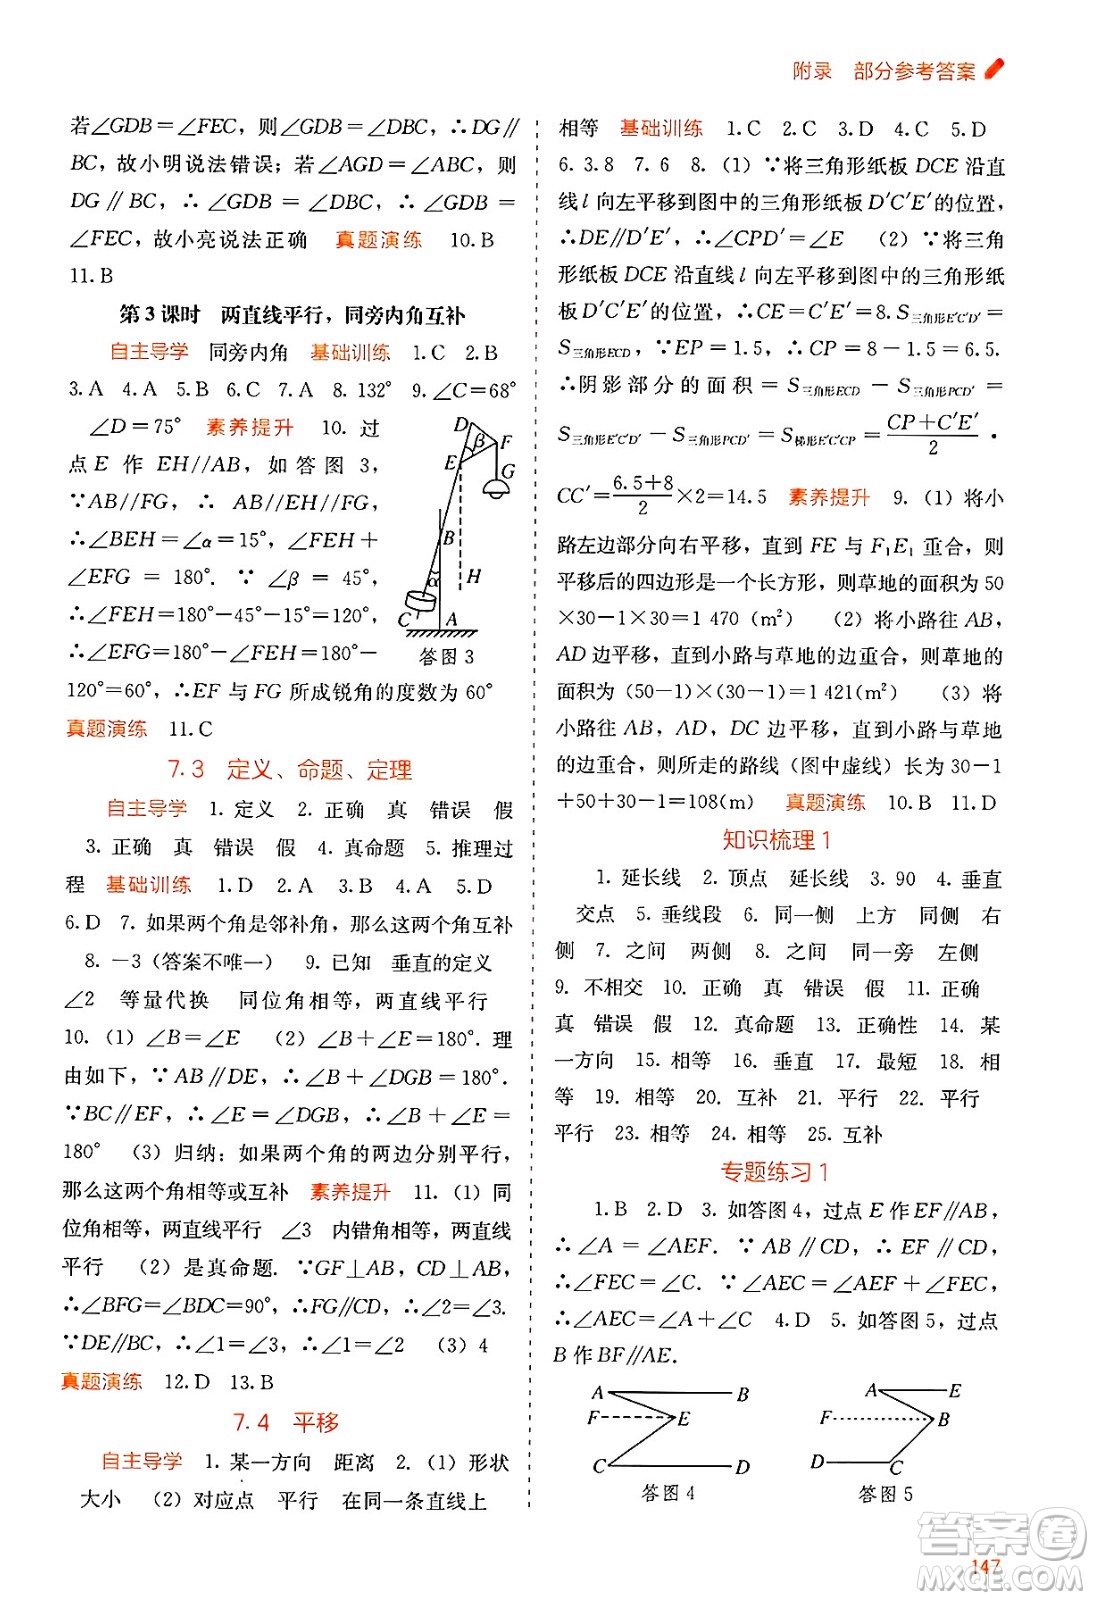 附录 部分参考答案
若∠GDB=∠FEC，则∠GDB=∠DBC，∴DG∥
BC，故小明说法错误；若∠AGD=∠ABC，则
DG∥BC，∴∠GDB=∠DBC，∴∠GDB=
∠FEC，故小亮说法正确 真题演练 10. B
11. B
第3课时 两直线平行，同旁内角互补
自主导学 同旁内角 基础训练 1. C 2. B
3. A 4. A 5. B 6. C 7. A 8. 132° 9. ∠C=68°
∠D=75° 素养提升 10. 过
点E作EH//AB，如答图3，
∵AB//FG，∴AB//EH//FG，
∴∠BEH=∠α=15°，∠FEH+
∠EFG=180°. ∵∠β=45°，
∴∠FEH=180°-45°-15°=120°，
∴∠EFG=180°-∠FEH=180°-
120°=60°，∴EF与FG所成锐角的度数为60°
D
F
β
E
G
B
α
H
C
A
答图3
真题演练 11. C
7.3 定义、命题、定理
自主导学 1. 定义 2. 正确 真 错误 假
3. 正确 真 错误 假 4. 真命题 5. 推理过
程 基础训练 1. D 2. A 3. B 4. A 5. D
6. D 7. 如果两个角是邻补角，那么这两个角互补
8. -3（答案不唯一） 9. 已知 垂直的定义
∠2 等量代换 同位角相等，两直线平行
10.（1）∠B=∠E （2）∠B+∠E=180°. 理
由如下，∵AB∥DE，∴∠B+∠DGB=180°.
∵BC∥EF，∴∠E=∠DGB，∴∠B+∠E=
180° （3）归纳：如果两个角的两边分别平行，
那么这两个角相等或互补 素养提升 11.（1）同
位角相等，两直线平行 ∠3 内错角相等，两直线
平行 （2）是真命题. ∵GF⊥AB，CD⊥AB，
∴∠BFG=∠BDC=90°，∴FG∥CD，∴∠2=∠3.
∵DE∥BC，∴∠1=∠3，∴∠1=∠2 （3）4
真题演练 12. D 13. B
7.4 平移
自主导学 1. 某一方向 距离 2.（1）形状
大小 （2）对应点 平行 在同一条直线上
相等 基础训练 1. C 2. C 3. D 4. C 5. D
6. 3.8 7. 6 8.（1）∵将三角形纸板DCE沿直
线l向左平移到图中的三角形纸板D′C′E′的位置，
∴DE∥D′E′，∴∠CPD′=∠E （2）∵将三角
形纸板DCE沿直线l向左平移到图中的三角形纸
板D′C′E′的位置，∴CE=C′E′=8. S三角形E′C′D′=
S三角形ECD，∵EP=1.5，∴CP=8-1.5=6.5.
∴阴影部分的面积=S三角形ECD-S三角形PCD′=
S三角形E′C′D′-S三角形PCD′=S梯形E′C′CP=(CP+C′E′)/2·
CC′=(6.5+8)/2×2=14.5 素养提升 9.（1）将小
路左边部分向右平移，直到FE与F₁E₁重合，则
平移后的四边形是一个长方形，则草地的面积为50
×30-1×30=1 470（m²） （2）将小路往AB，
AD边平移，直到小路与草地的边重合，则草地的
面积为(50-1)×(30-1)=1 421(m²) （3）将
小路往AB，AD，DC边平移，直到小路与草地
的边重合，则所走的路线（图中虚线）长为30-1
+50+30-1=108(m) 真题演练 10. B 11. D
知识梳理1
1. 延长线 2. 顶点 延长线 3. 90 4. 垂直
交点 5. 垂线段 6. 同一侧 上方 同侧 右
侧 7. 之间 两侧 8. 之间 同一旁 左侧
9. 不相交 10. 正确 真 错误 假 11. 正确
真 错误 假 12. 真命题 13. 正确性 14. 某
一方向 15. 相等 16. 垂直 17. 最短 18. 相
等 19. 相等 20. 互补 21. 平行 22. 平行
平行 23. 相等 24. 相等 25. 互补
专题练习1
1. B 2. D 3. 如答图4，过点E作EF∥AB，
∴∠A=∠AEF. ∵AB∥CD，∴EF∥CD，
∴∠FEC=∠C. ∵∠AEC=∠AEF+∠FEC，
∴∠AEC=∠A+∠C 4. D 5. 如答图5，过点
B作BF∥AE.
A B
F E
C D
答图4
A E
F B
D C
答图5
答案卷
147